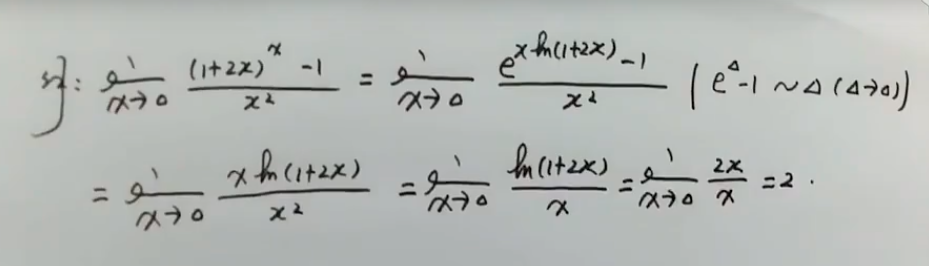 例: lim x→0 ((1+2x)^x -1)/x² = lim x→0 (e^(x ln(1+2x)) -1)/x² (e^Δ -1 ~ Δ (Δ→0))
= lim x→0 (x ln(1+2x))/x² = lim x→0 (ln(1+2x))/x = lim x→0 2x/x = 2.